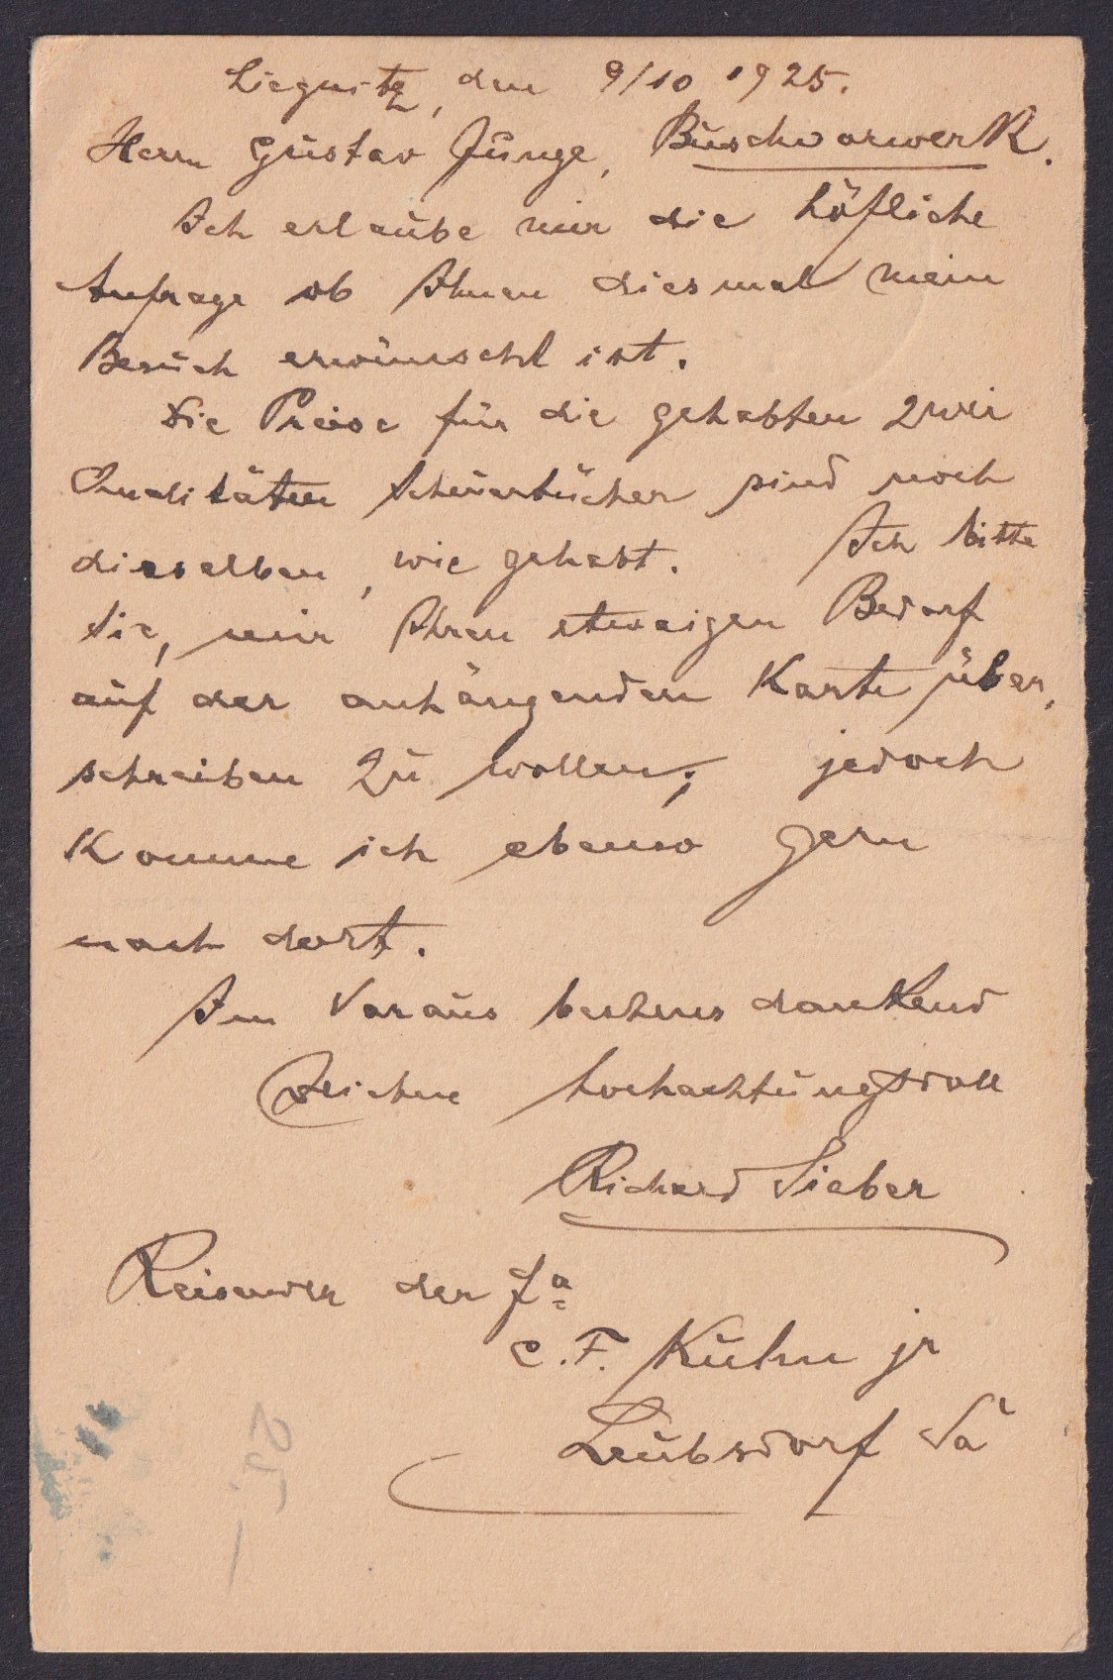 Liegnitz, den 9/10 1925.
Herrn Gustav Junge, Buschvorwerk.
Ich erlaube mir die höfliche
Anfrage ob Ihnen diesmal mein
Besuch erwünscht ist.
Die Preise für die gehabten zwei
Qualitäten Scheuertücher sind noch
dieselben, wie gehabt. Ich bitte
Sie, mir Ihren etwaigen Bedarf
auf der anhängenden Karte über,
schreiben zu wollen; jedoch
komme ich ebenso gern
nach dort.
Im Voraus bestens dankend
zeichne hochachtungsvoll
Richard Sieber
Reisender der Fa
C. F. Kuhn jr
Leubsdorf Sa